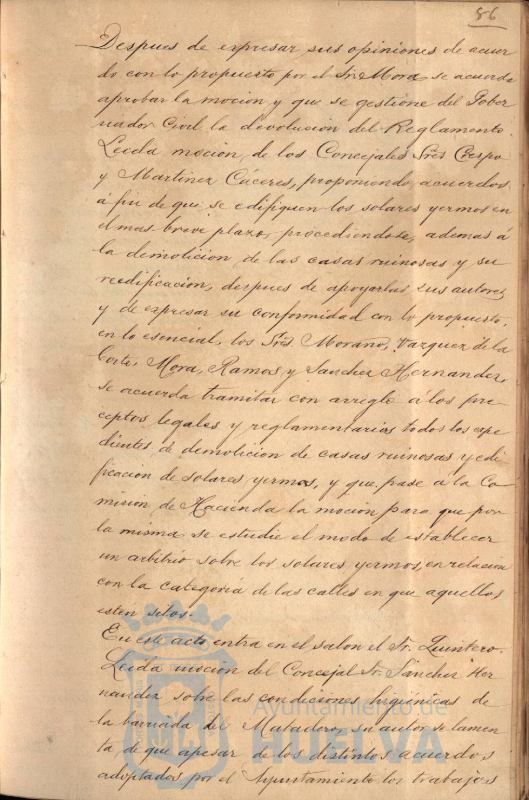 56
Despues de expresar sus opiniones de acuer
do con lo propuesto por el Sr. Mora se acuerda
aprobar la mocion y que se gestione del Gober
nador Civil la devolucion del Reglamento.
Leida mocion, de los Concejales Sres Crespo
y Martinez Cáceres, proponiendo, acuerdos
á fin de que se edifiquen los solares yermos en
el mas breve plazo, procediendose, ademas á
la demolicion, de las casas ruinosas y su
reedificacion, despues de apoyarlas sus autores
y de expresar su conformidad con lo propuesto,
en lo esencial, los Sres. Morano, Vazquez de la
Corte, Mora, Ramos, y Sanchez Hernandez,
se acuerda tramitar con arreglo á los pre
ceptos legales y reglamentarios todos los espe
dientes de demolicion de casas ruinosas y edi
ficacion de solares yermos, y que pase á la Co-
mision de Hacienda la mocion para que por
la misma se estudie el modo de establecer
un arbitrio sobre los solares yermos, en relacion
con la categoria de las calles en que aquellos
esten sitos.
En este acto entra en el salon el Sr. Quintero.
Leida mocion del Concejal Sr. Sánchez Her
nandez sobre las condiciones higiénicas de
la barriada del Matadero, su autor se lamen
ta de que apesar de los distintos acuerdos
adoptados por el Ayuntamiento los trabajos
Ayuntamiento de
HUELVA